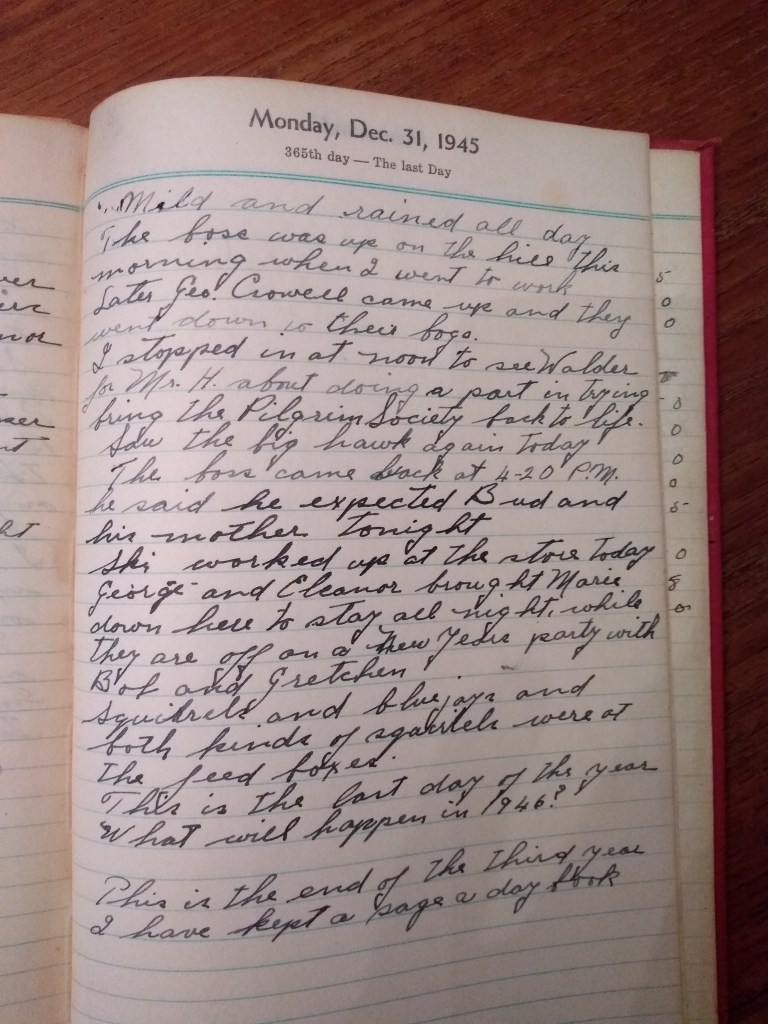 Monday, Dec. 31, 1945
365th day — The last Day
Mild and rained all day
The boss was up on the hill this
morning when I went to work
Later Geo. Crowell came up and they
went down to their bogs.
I stopped in at noon to see Walder
for Mr. H. about doing a part in trying
bring the Pilgrim Society back to life.
Saw the big hawk again today
The boss came back at 4-20 P.M.
he said he expected Bud and
his mother tonight
Ski worked up at the store today
George and Eleanor brought Marie
down here to stay all night, while
they are off on a New Years party with
Bob and Gretchen
Squirrels and bluejays and
both kinds of squirrels were at
the feed boxes.
This is the last day of the year
What will happen in 1946?
This is the end of the third year
I have kept a page a day book